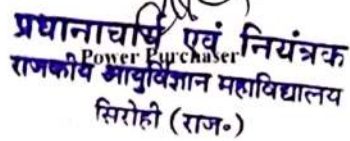 प्रधानाचार्य एवं नियंत्रक
Power Purchaser
राजकीय आयुर्विज्ञान महाविद्यालय
सिरोही (राज॰)